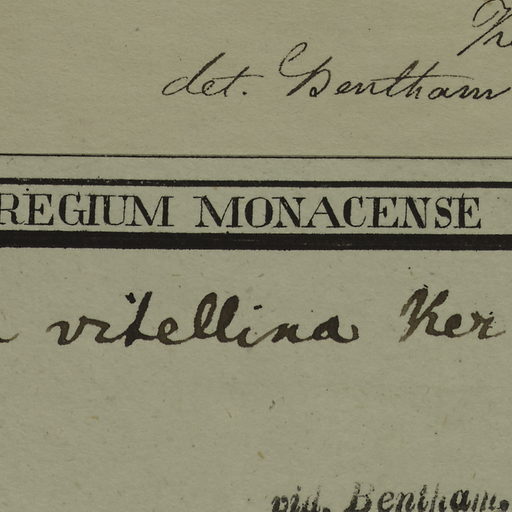 det. Bentham
REGIUM MONACENSE
vitellina Ker
vid. Bentham.